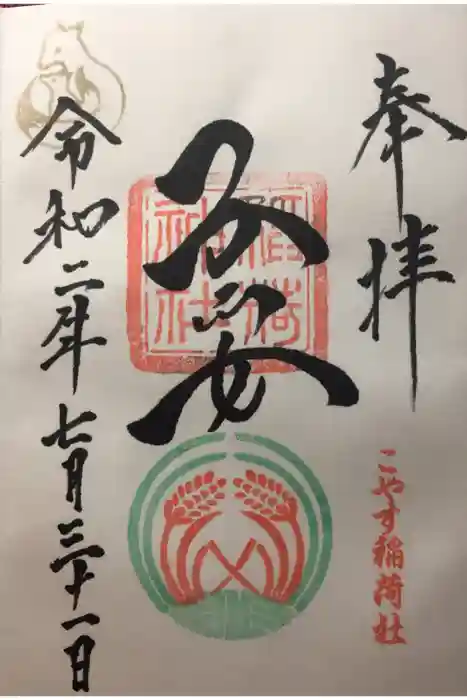 奉拝
こやす稲荷社
子安
稲荷
神社
令和二年七月三十一日